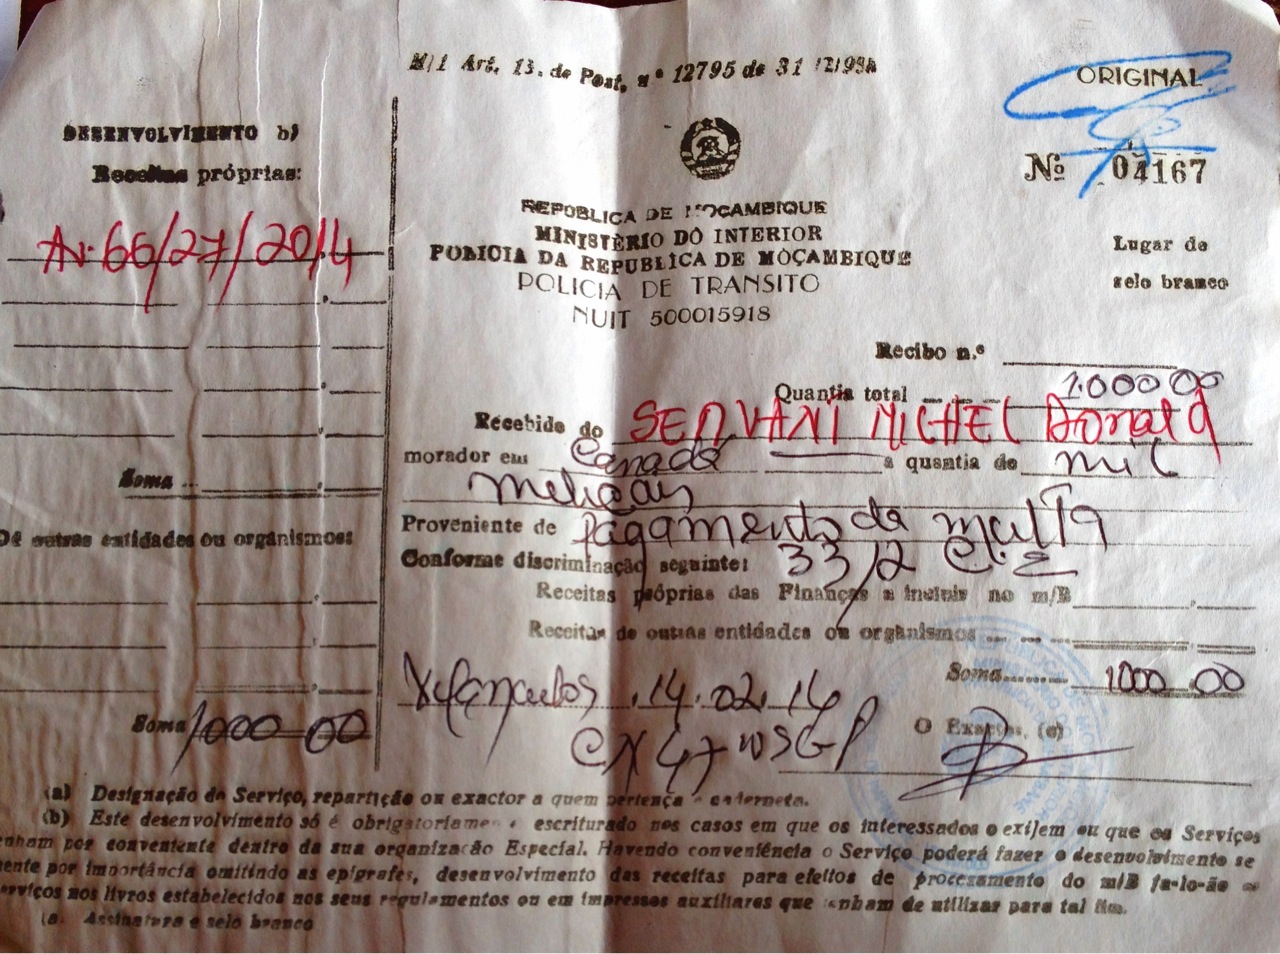 M/1 Art. 13. de Post. nº 12795 de 31 12/994
ORIGINAL
Nº 04167
DESENVOLVIMENTO b)
Receitas próprias:
AV. 66/27/2014
Soma
De outras entidades ou orgânismos:
Soma 1000 00
REPÚBLICA DE MOÇAMBIQUE
MINISTÈRIO DO INTERIOR
POLICIA DA REPUBLICA DE MOÇAMBIQUE
POLICIA DE TRANSITO
NUIT 500015918
Lugar do
selo branco
Recibo n.º
Quantia total 1.000 00
Recebido do SERVANI MICHEL Donald
morador em Canadá a quantia de mil
meticais
Proveniente de Pagamento da multa
Conforme discriminação seguinte: 33/2 C.E
Receitas próprias das Finanças a incluir no m/B
Receitas de outras entidades ou orgânismos
Soma 1000 00
14.02.14
O Exactor, (a)
(a) Designação do Serviço, repartição ou exactor a quem pertença a caderneta.
(b) Este desenvolvimento só é obrigatoriamente escriturado nos casos em que os interessados o exijem ou que os Serviços
tenham por conveniente dentro da sua organização Especial. Havendo conveniência o Serviço poderá fazer o desenvolvimento se
mente por importância omitindo as epígrafes, desenvolvimento das receitas para efeitos de processamento do m/B fa-lo-ão
serviços nos livros estabelecidos nos seus regulamentos ou em impressos auxiliares que tenham de utilizar para tal fim.
(a Assinatura e selo branco